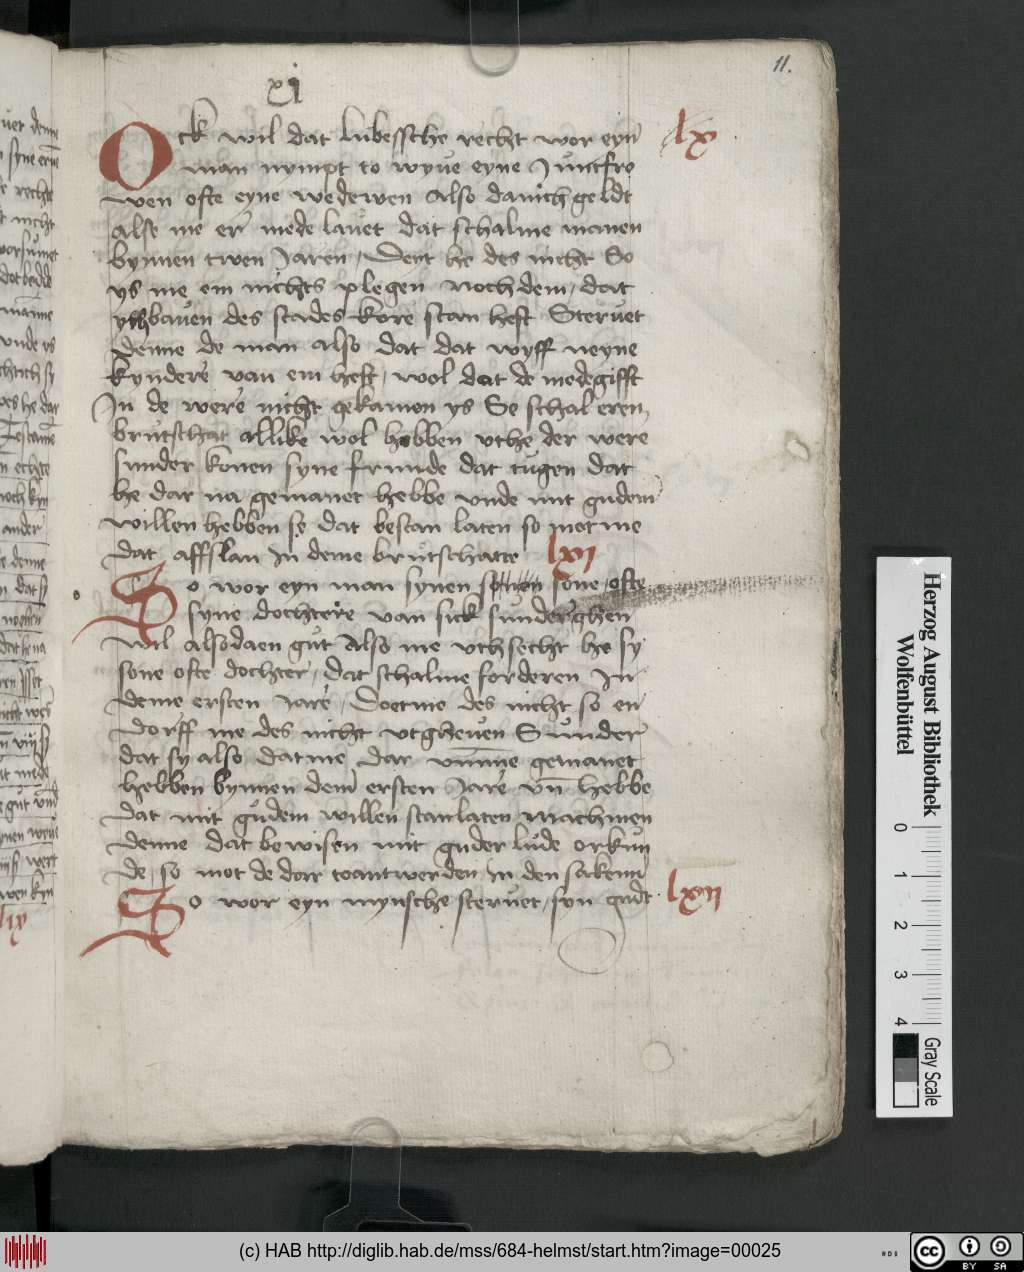 xi
11.
Ock wil dat lubessche recht wor eyn lx
man nympt to wyue eyne Junckfro
wen ofte eyne wedewen also danich geldt
alse me er mede lauet dat schalme manen
bynnen twen Jaren / Deyt he des nicht So
ys me em nichts plegen noch dem / dat
yth bauen des stades kore stan heft Steruet
denne de man also dat dat wyff neyne
kyndere van em heft / wol dat de medegifft
In de were nicht gekamen ys Se schal eren
brutschat allike wol hebben vthe der were
sunder konen syne frunde dat tugen dat
he dar na gemanet hebbe vnde mit gudem
willen hebben se dat bestan laten so mot me
dat affslan In deme brutschatte lxi
So wor eyn man synen sone ofte
syne dochtere van sick sunderghen
wil alsodaen gut Also me vthsecht he sy
sone ofte dochter / dat schalme forderen In
deme ersten Jare / Doetme des nicht so en
dorff me des nicht vtgheuen Sunder
dat sy also datme dar vmme gemanet
hebben bynnen dem ersten Jare vn hebbe
dat mit gudem willen stan laten machmen
denne dat bewisen mit guder lude orkun
de / so mot de dar toantwerden In den saken
So wor eyn mynsche steruet / syn gudt lxii
Herzog August Bibliothek
Wolfenbüttel
0 1 2 3 4
Gray Scale
(c) HAB http://diglib.hab.de/mss/684-helmst/start.htm?image=00025
cc BY SA